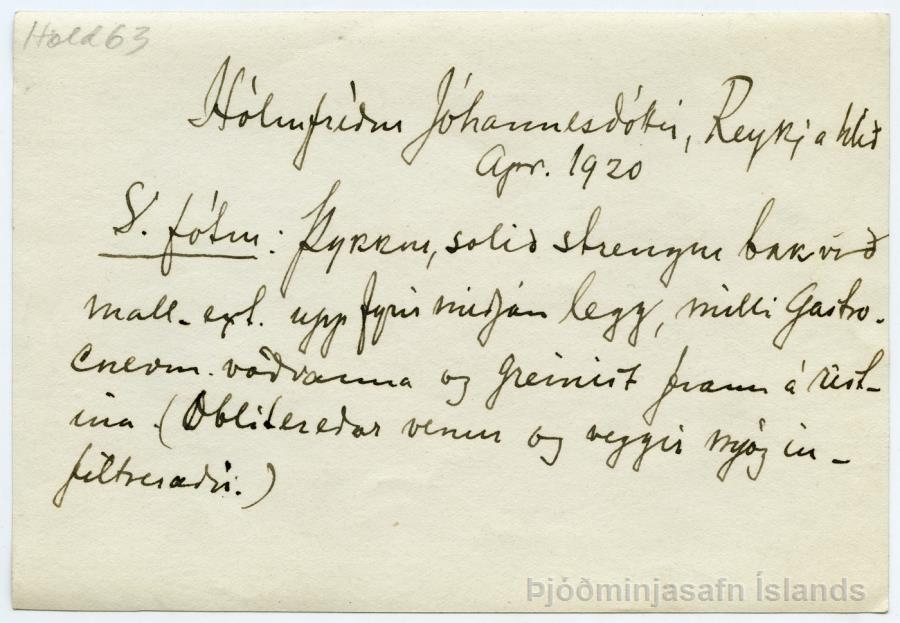 Hold 63
Hólmfríður Jóhannesdóttir, Reykjahlíð
Apr. 1920
V. fótur: Þykkur, solid strengur bakvið
mall. ext. upp fyrir miðjan legg, milli Gastro-
cnem. vöðvanna og greinist fram á rist-
ina. (Obliteredar venur og veggir mjög in-
filtreraðir.)
Þjóðminjasafn Íslands